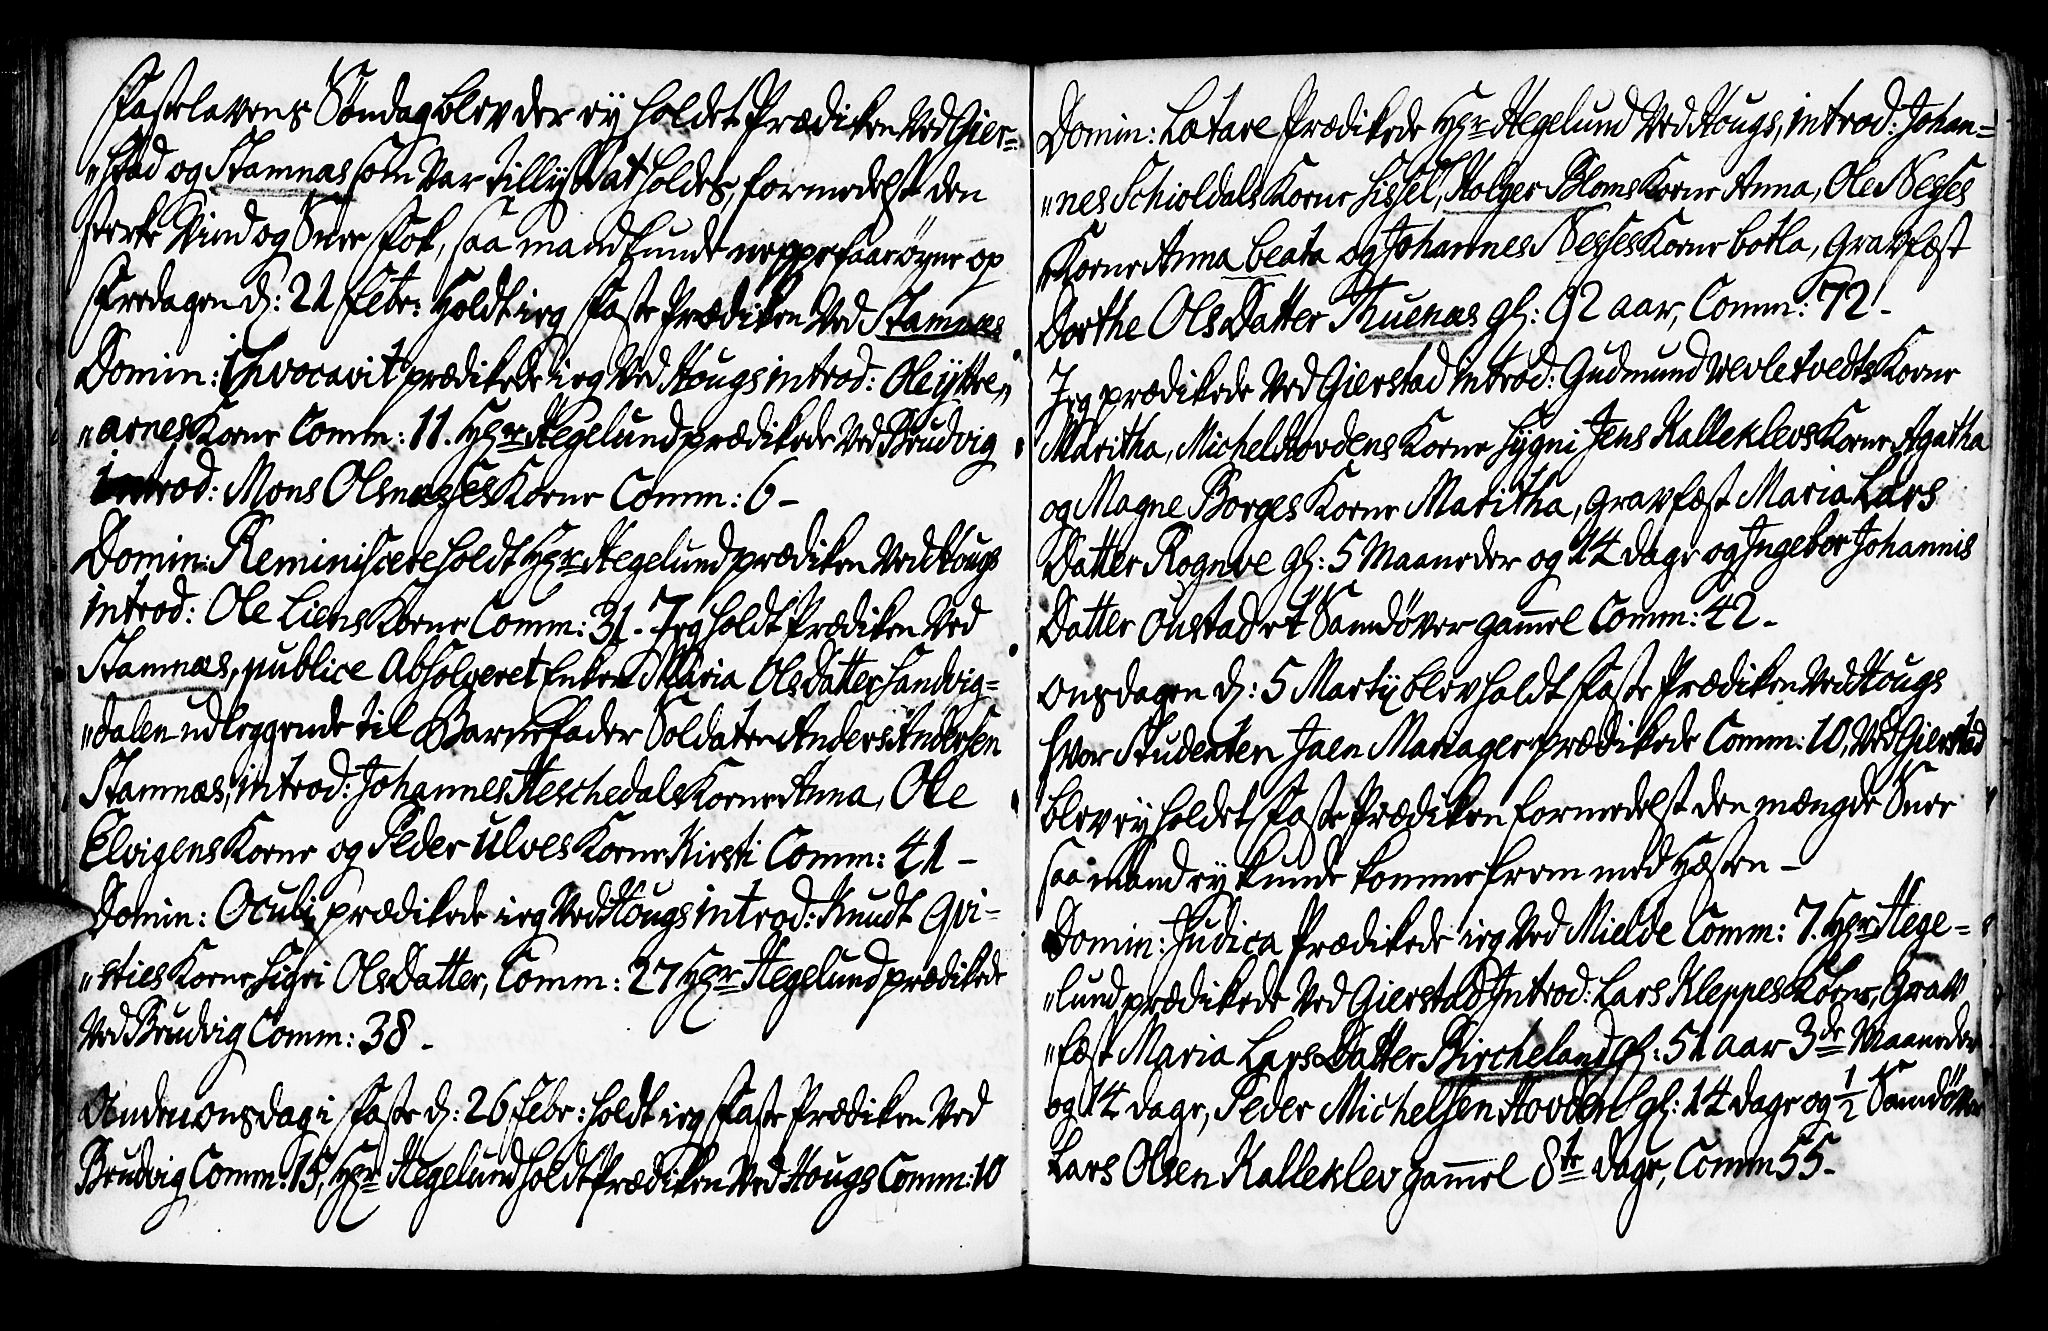 Fastelavens Søndag blev der ey holdet Prædiken ved Gier=
„stad og Stamnæs som var tillyst at holdes, formedelst den
sterke Vind og Snee fok, saa mand kunde neppe faae øyne op
Fredagen d: 21 Febr: holdt ieg Faste Prædiken ved Stamnæs
Domin: Invocavit prædikede ieg ved Hougs introd: Ole ÿttre„
„arnes Kone Comm: 11. Hr Hegelund prædikede ved Brudvig
introd: Mons Olsnæsses Kone Comm: 6 –
Domin: Reminiscere holdt Hr Hegelund prædiken ved Hougs
introd: Ole Liens Kone Comm: 31. Jeg holdt Prædiken ved
Stamnæs, publice Absolveret Enken Maria OlsDatter Sandvig=
„dalen udleggende til Barnefader Soldaten Anders Andersen
Stamnæs, introd: Johannes Heschedals Kone Anna, Ole
Elvigens Kone og Peder Ulves Kone Kirsti Comm: 41 –
Domin: Oculi prædikede ieg ved Hougs introd: Knudt Qvi=
„sties Kone Sigri OlsDatter, Comm: 27 Hr Hegelund prædikede
ved Brudvig Comm: 38 –
Anden onsdag i Faste d: 26 Febr: holdt ieg Faste Prædiken ved
Brudvig Comm: 15, Hr Hegelund holdt Prædiken ved Hougs Comm: 10
Domin: Lætare Prædikede Hr Hegelund ved Hougs, introd: Johan=
„nes Schioldals Kone Sissel, Holger Bloms Kone Anna, Ole Nesses
Kone Anna beata og Johannes Nesses Kone botla, gravfæst
Dorthe OlsDatter Thuenæs gl: 92 aar, Comm: 72 –
Jeg prædikede ved Gierstad introd: Gudmund Vevletvedts Kone
Maritha, Michel Hovdens Kone Sygni Jens Kalleklevs Kone Agatha
og Magne Borges Kone Maritha, gravfæst Maria Lars
Datter Rognve gl: 5 Maaneder og 14 dage og Ingebor Johannis
Datter Oustad et Samdøver gammel Comm: 42 –
Onsdagen d: 5 Martij blev holdt Faste Prædiken ved Hougs
hvor Studenten Jaen Mariager prædikede Comm: 10, ved Gierstad
blev ey holdet Faste Prædiken formedelst den mængde Snee
saa mand ey kunde komme frem med Hæsten –
Domin: Judica Prædikede ieg ved Mielde Comm: 7. Hr Hege=
„lund prædikede ved Gierstad Introd: Lars Kleppes Kone, Grav
„fæst Maria LarsDatter Bircheland gl: 51 aar 3de Maaneder
og 14 dage, Peder Michelsen Hovden gl: 14 dage og ½ Samdøver
Lars Olsen Kalleklev gammel 8te dage, Comm 55 –